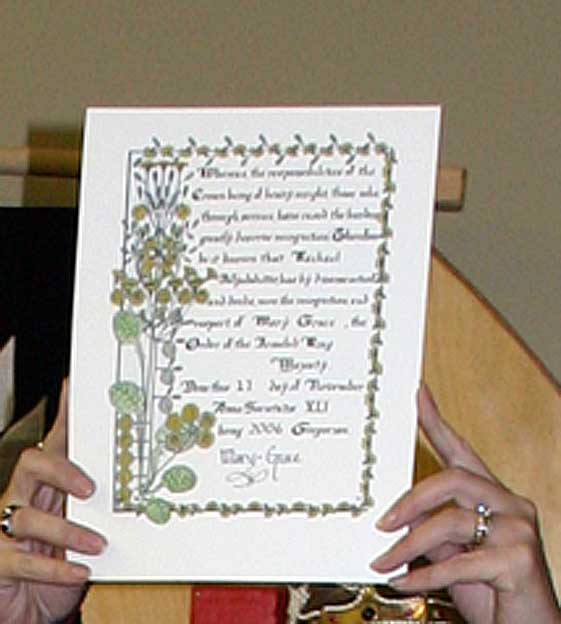 Whereas, the responsibilities of the
Crown being of heavy weight, those who
through service, have eased the burden
greatly deserve recognition.
be it known that
has by
and deeds, won the recognition and
respect of Mary Grace, the
Order of the Ring
Majesty
Done this 11 day of November
Anno Societatis XLI
being 2006 Gregorian
Mary-Grace